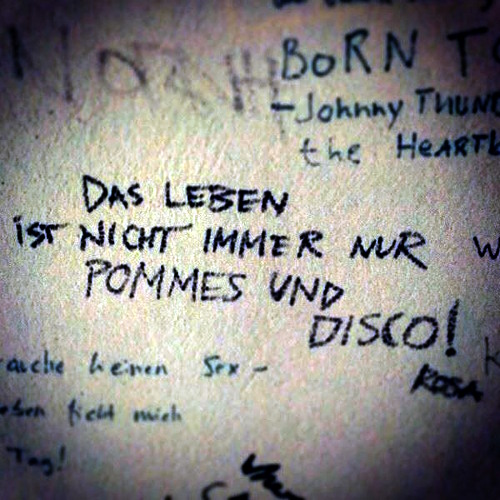 NORAH
BORN TO
- Johnny THUN
the HEARTB
DAS LEBEN
iST NICHT IMMER NUR
POMMES UND
DISCO!
ROSA
auche keinen Sex -
eben fickt mich
Tag!